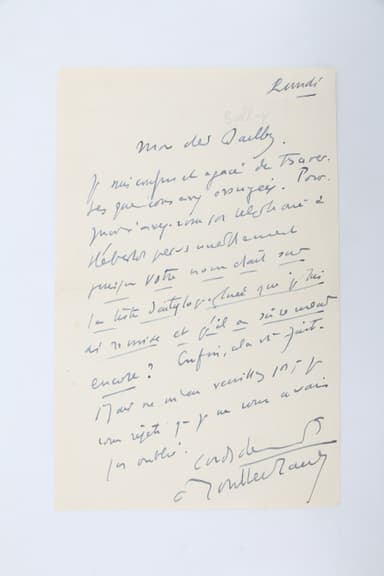 Lundi
Mon cher Bailby,
Je suis confus et agacé de traver-
ses que vous avez essuyées. Pour-
quoi n'avez-vous pas téléphoné à
Hébertot personnellement
puisque votre nom était sur
la liste dactylographiée que je lui
ai remise et qu'il a sûrement
encore ? Enfin, cela est fait.
Mais ne m'en veuillez pas, je
vous répète que je ne vous avais
pas oublié.
Cordialement
Montherlant